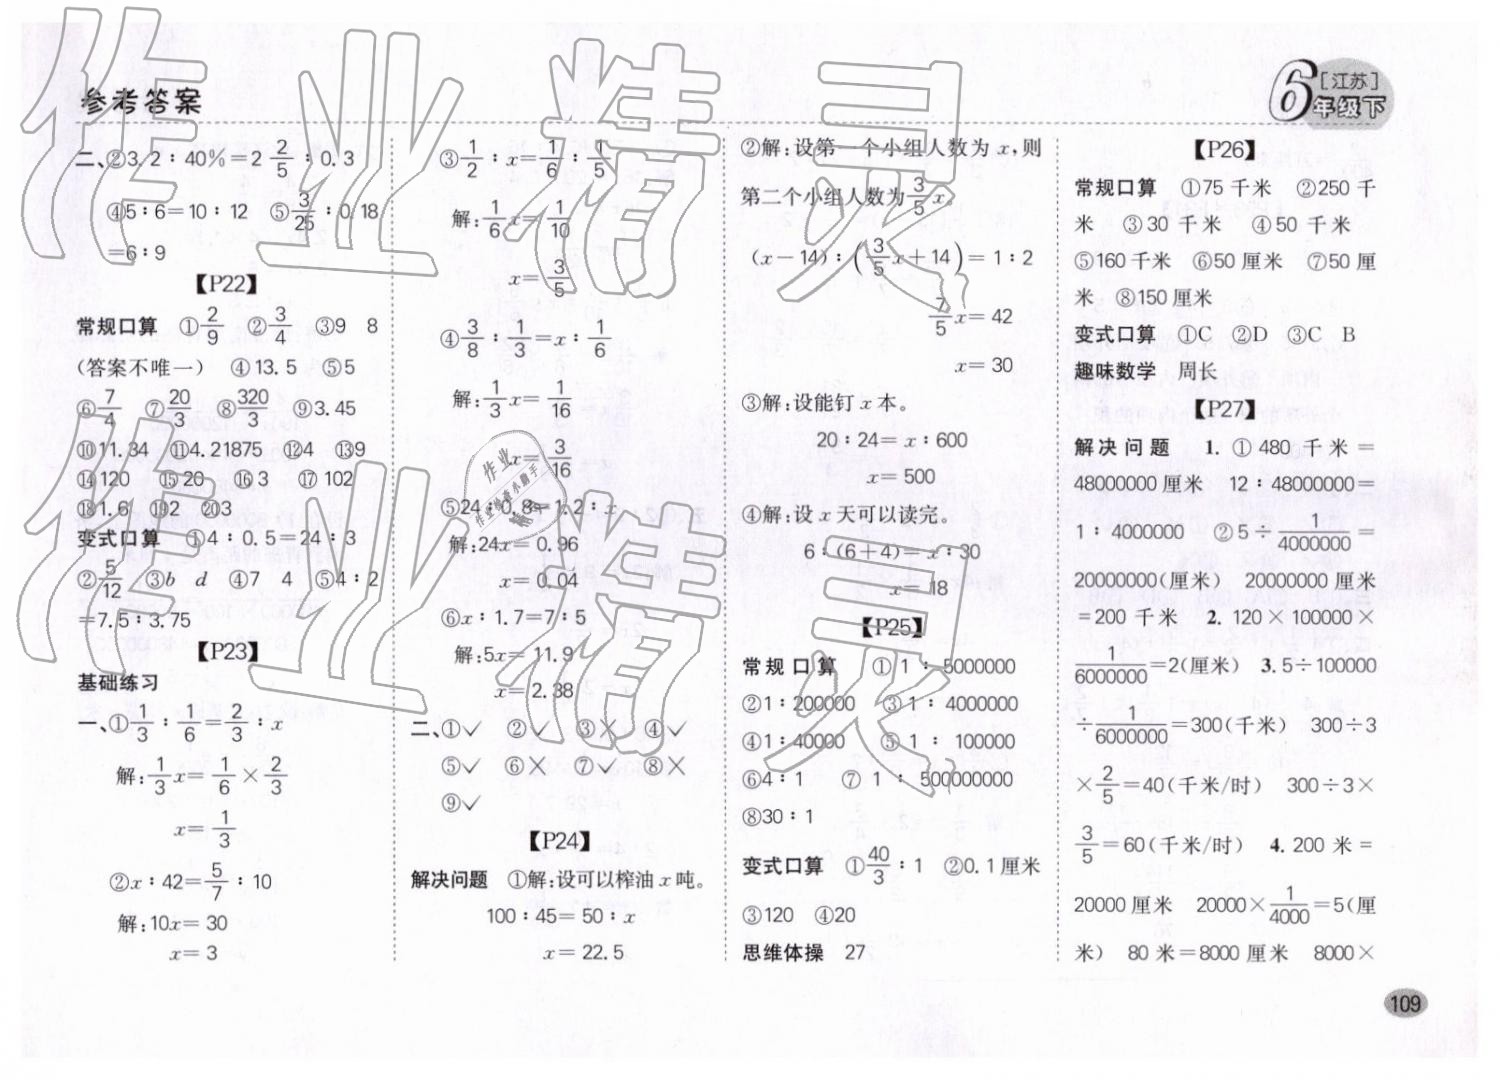 参考答案
6年级下[江苏]
二、②3.2∶40%=2 2/5∶0.3
④5∶6=10∶12 ⑤3/25∶0.18
=6∶9
【P22】
常规口算 ①2/9 ②3/4 ③9 8
(答案不唯一) ④13.5 ⑤5
⑥7/4 ⑦20/3 ⑧320/3 ⑨3.45
⑩11.34 ⑪4.21875 ⑫4 ⑬9
⑭120 ⑮20 ⑯3 ⑰102
⑱1.6 ⑲2 ⑳3
变式口算 ①4∶0.5=24∶3
②5/12 ③b d ④7 4 ⑤4∶2
=7.5∶3.75
【P23】
基础练习
一、①1/3∶1/6=2/3∶x
解:1/3x=1/6×2/3
x=1/3
②x∶42=5/7∶10
解:10x=30
x=3
③1/2∶x=1/6∶1/5
解:1/6x=1/10
x=3/5
④3/8∶1/3=x∶1/6
解:1/3x=1/16
x=3/16
⑤24∶0.8=1.2∶x
解:24x=0.96
x=0.04
⑥x∶1.7=7∶5
解:5x=11.9
x=2.38
二、①✓ ②✓ ③× ④✓
⑤✓ ⑥× ⑦✓ ⑧×
⑨✓
【P24】
解决问题 ①解:设可以榨油x吨。
100∶45=50∶x
x=22.5
②解:设第一个小组人数为x,则
第二个小组人数为3/5x。
(x-14)∶(3/5x+14)=1∶2
7/5x=42
x=30
③解:设能钉x本。
20∶24=x∶600
x=500
④解:设x天可以读完。
6∶(6+4)=x∶30
x=18
【P25】
常规口算 ①1∶5000000
②1∶200000 ③1∶4000000
④1∶40000 ⑤1∶100000
⑥4∶1 ⑦1∶500000000
⑧30∶1
变式口算 ①40/3∶1 ②0.1厘米
③120 ④20
思维体操 27
【P26】
常规口算 ①75千米 ②250千
米 ③30千米 ④50千米
⑤160千米 ⑥50厘米 ⑦50厘
米 ⑧150厘米
变式口算 ①C ②D ③C B
趣味数学 周长
【P27】
解决问题 1.①480千米=
48000000厘米 12∶48000000=
1∶4000000 ②5÷1/4000000=
20000000(厘米) 20000000厘米
=200千米 2.120×100000×
1/6000000=2(厘米) 3.5÷100000
÷1/6000000=300(千米) 300÷3
×2/5=40(千米/时) 300÷3×
3/5=60(千米/时) 4.200米=
20000厘米 20000×1/4000=5(厘
米) 80米=8000厘米 8000×
109
作业精灵
作业精灵